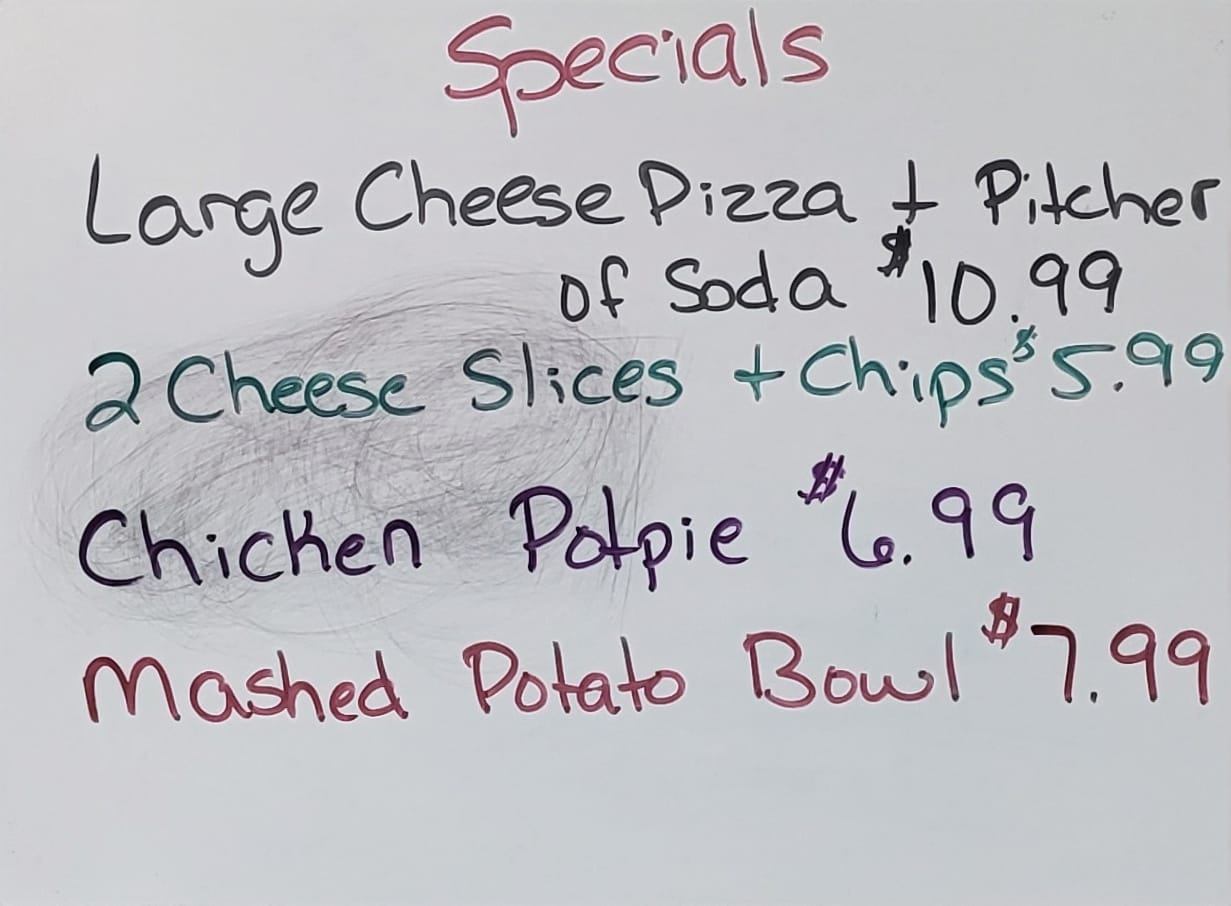 Specials
Large Cheese Pizza + Pitcher
of Soda $10.99
2 Cheese Slices + Chips $5.99
Chicken Potpie $6.99
Mashed Potato Bowl $7.99